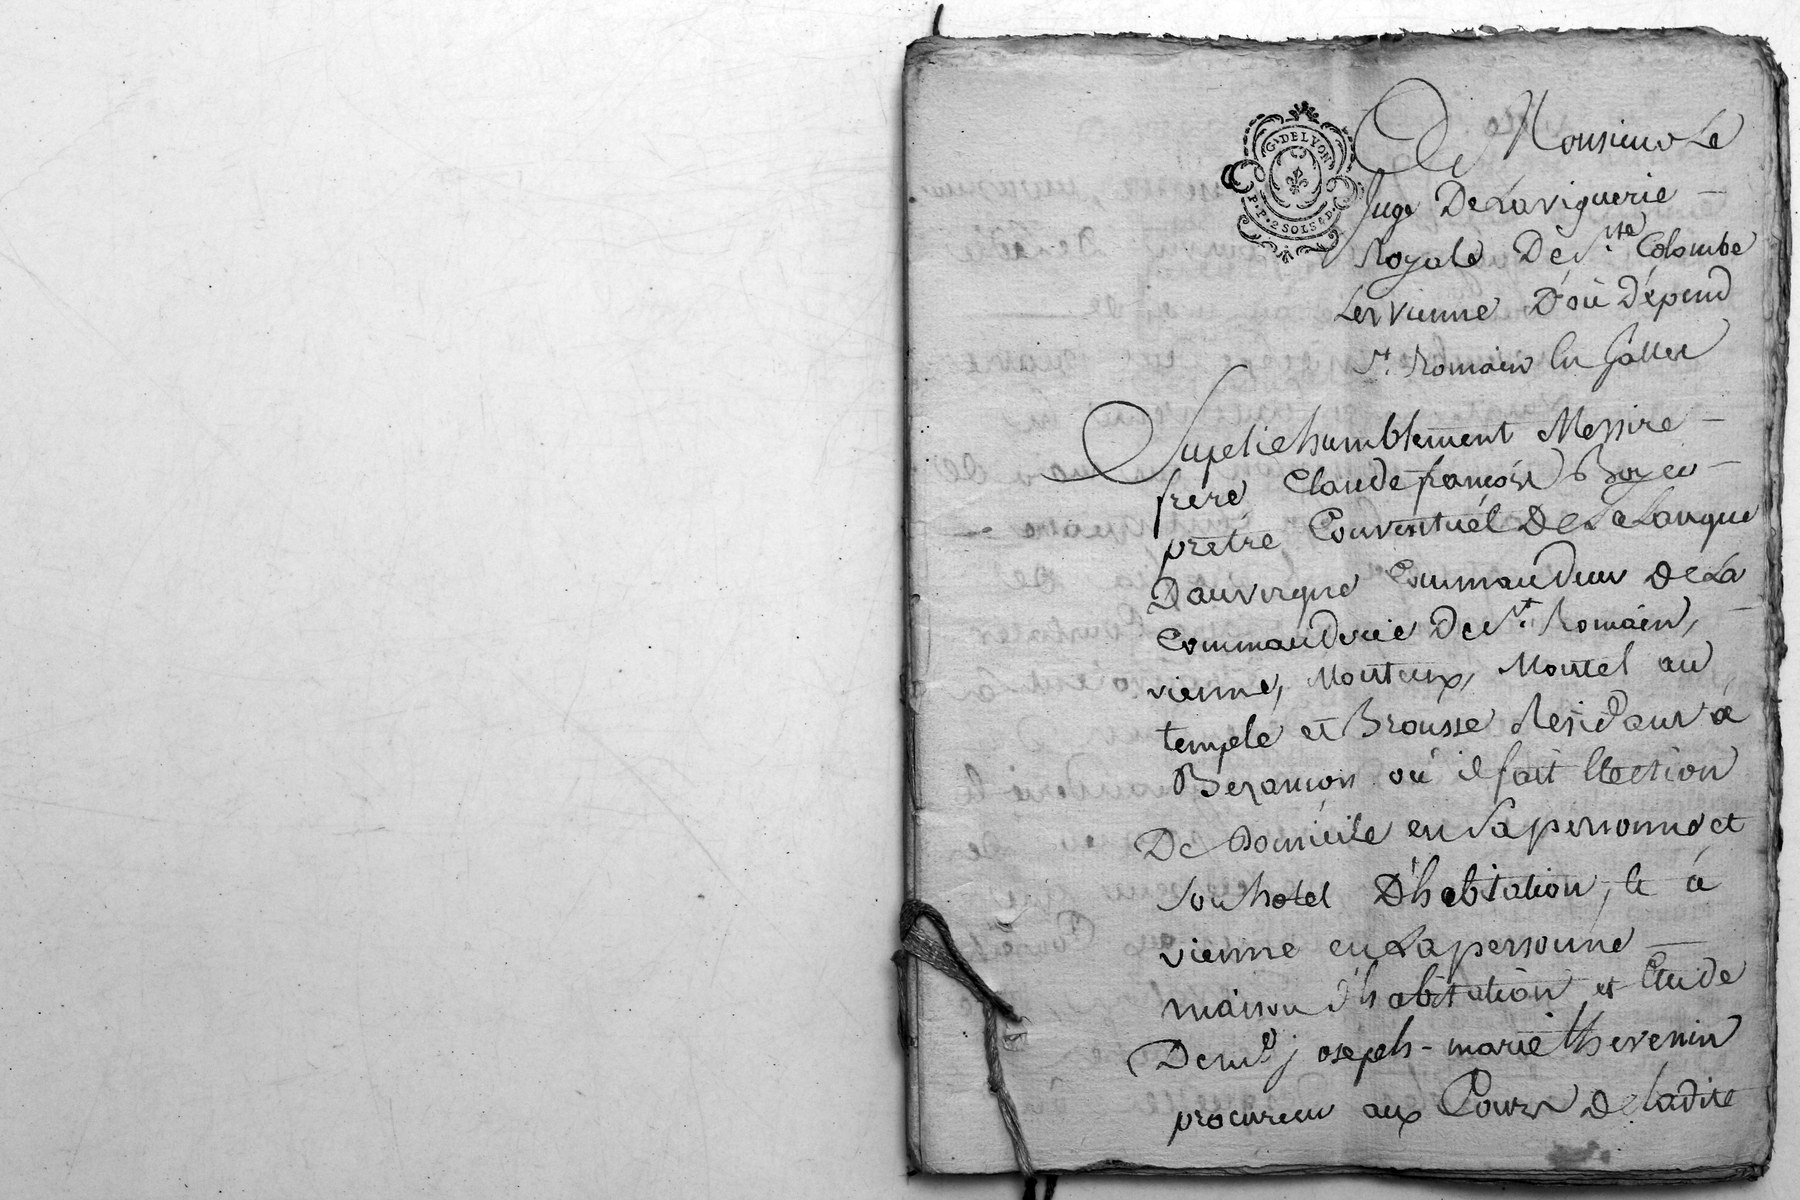 G. DE LYON
P. P. 2 SOLS 4 D.
A Monsieur Le
Juge De La viguerie
Royale De Ste. Colombe
Les vienne D'où Dépend
St. Romain en Galles
Suplie humblement Messire
frere Claude françois Boyer
prêtre Conventuél De La Langue
Dauvergne Commandeur De La
Commanderie De St. Romain,
vienne, Monteux, Montel au
temple et Brousse Residant á
Bezancon où il fait Election
De Domicile en Sa personne et
Son hotel D'habitation, et á
vienne en La personne
maison d'habitation et Etude
De me. joseph-marie thevenin
procureur aux Cours De ladite